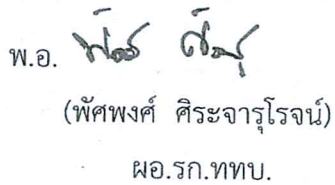 พ.อ.
(พัศพงศ์ ศิระจารุโรจน์)
ผอ.รก.ททบ.